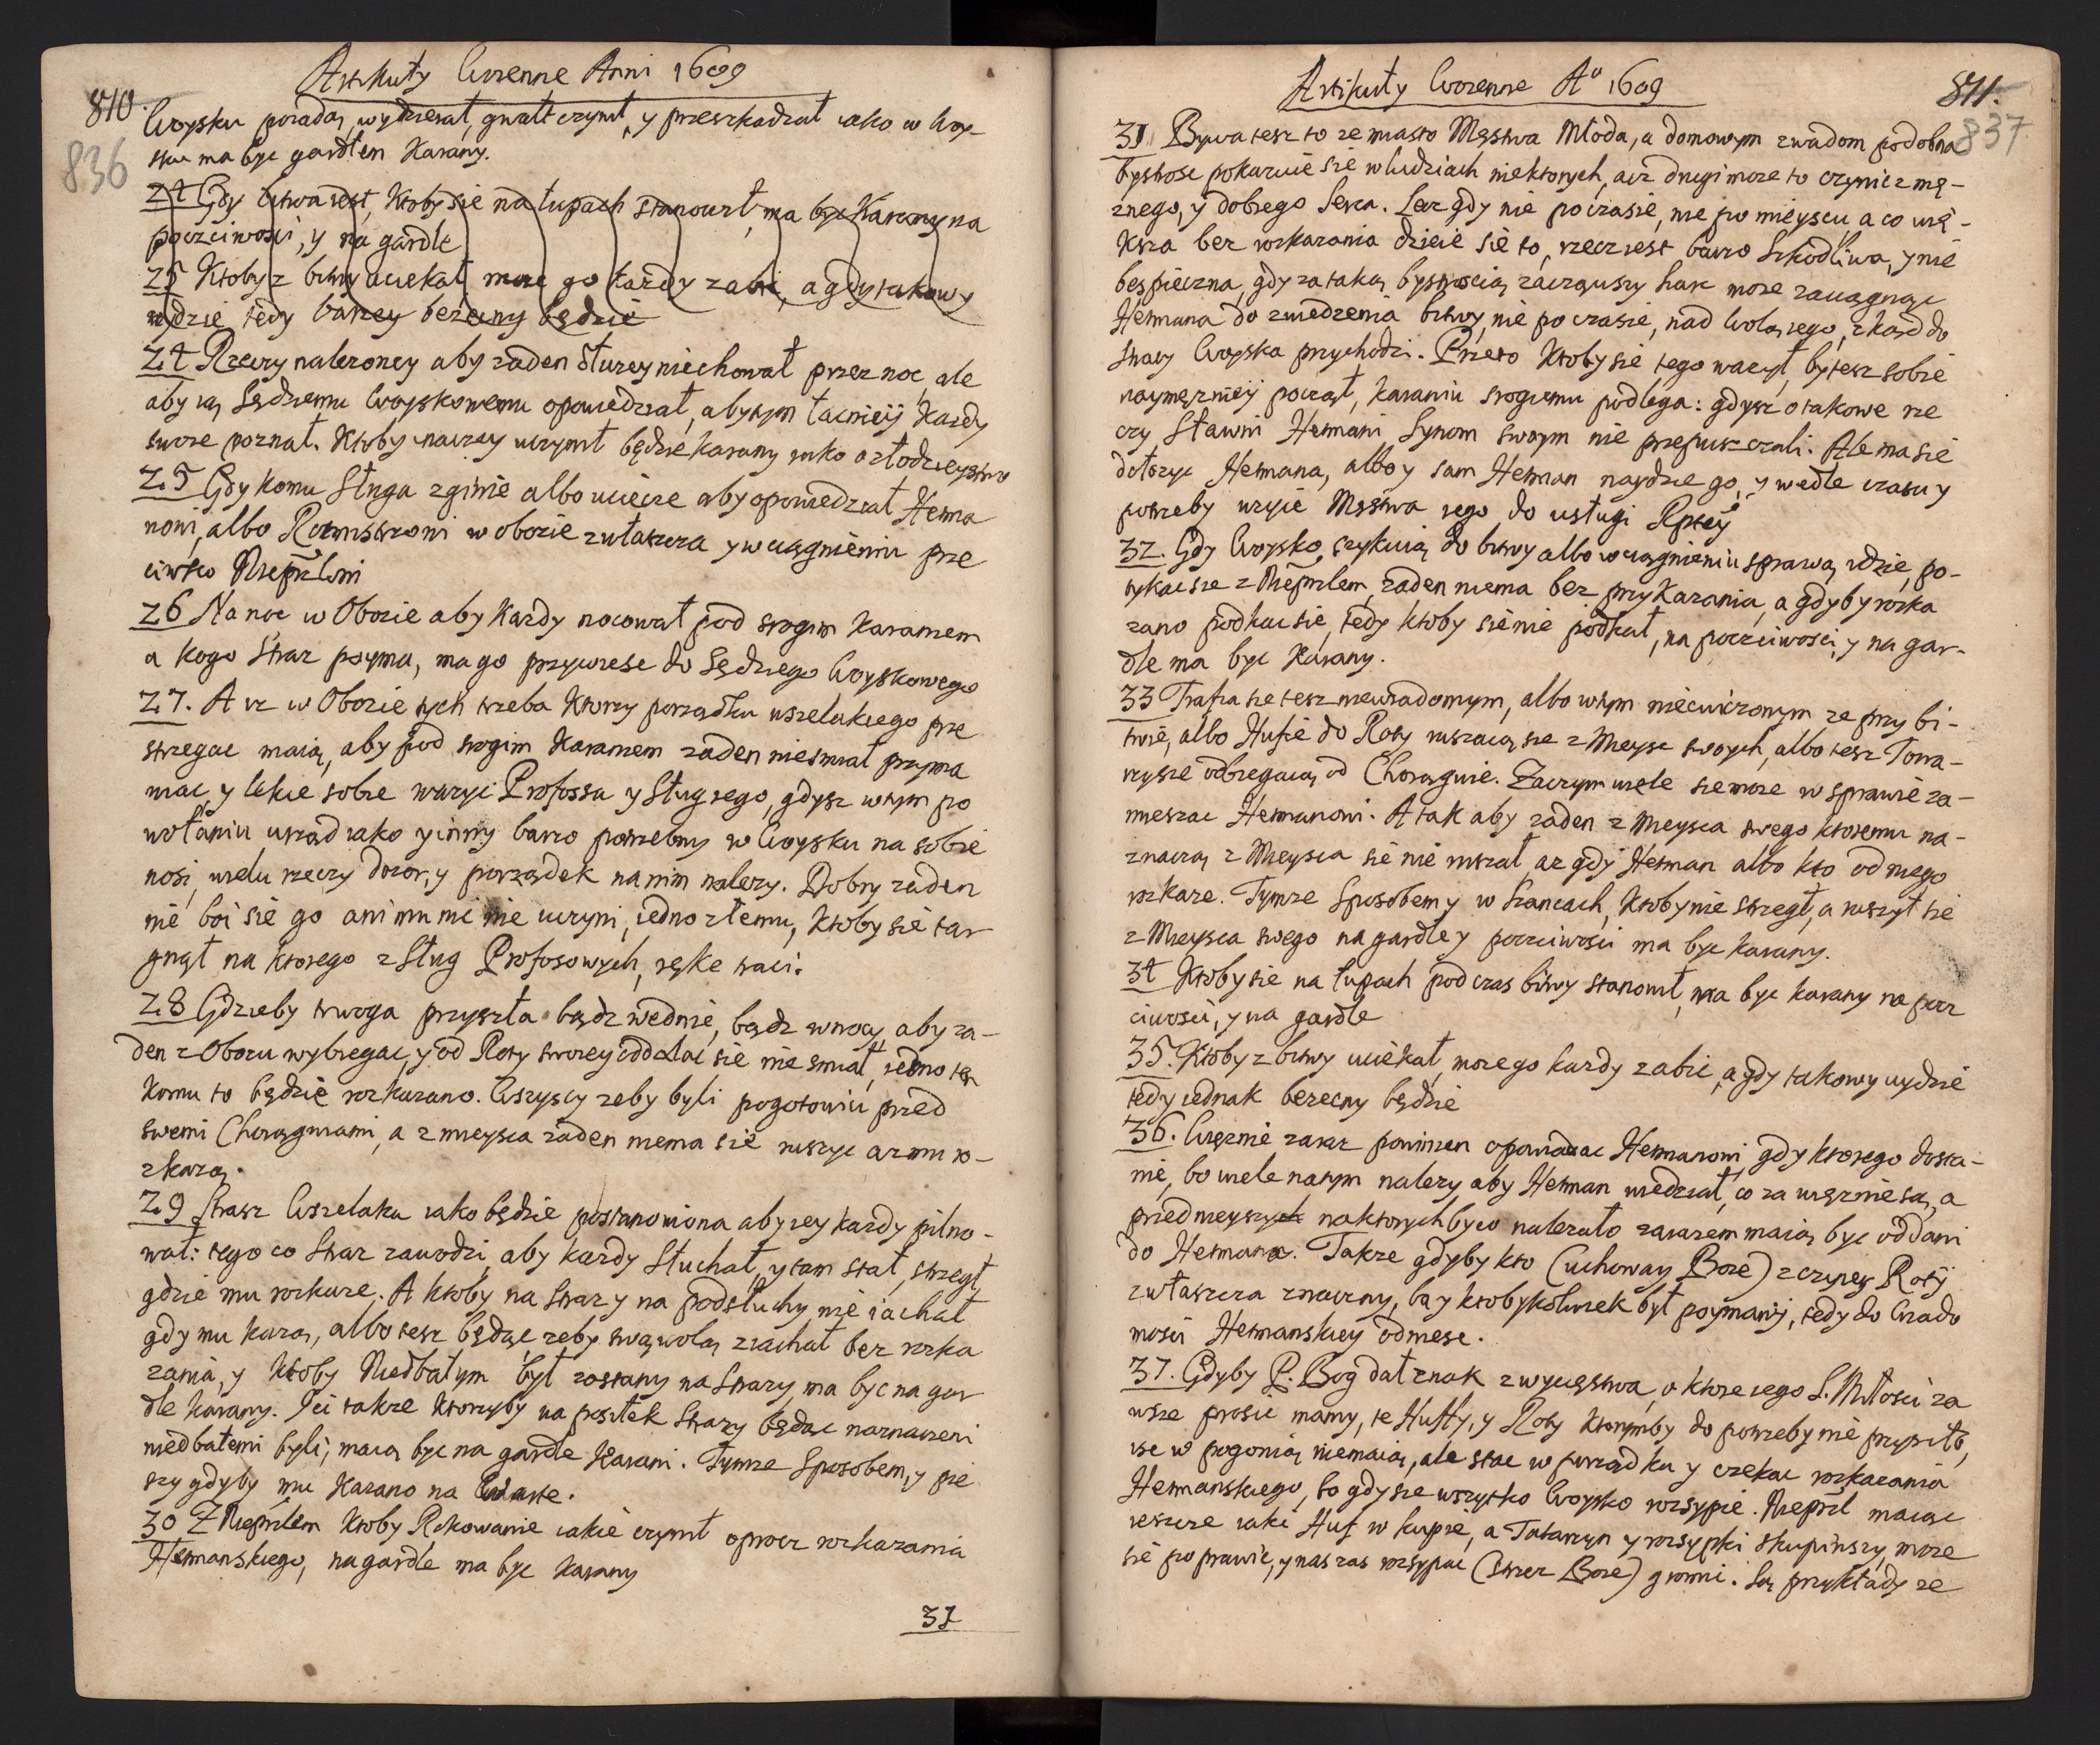 Artikuły Woienne Anni 1609
810.
836
Woysku poradą, wydzierał, gwałt czynił, y przeszkadzał iako w Woy-
sku ma byc gardłem Karany.
24 Gdy bitwa iest, Ktoby się na łupach stanowił, ma byc Karany na
poczciwosci, y na gardle
25 Ktoby z bitwy uciekał moze go każdy zabic, a gdy takowy
uydzie tedy bezecny będzie
24 Rzeczy nalezoney aby zaden dłuzey niechował przez noc, ale
aby ią Sędziemu Woyskowemu opowiedział, aby tym łacnieij Kazdy
swoie poznał. Ktoby inaczey uczynił będzie karany iako o złodzieystwo
25 Gdy komu Sługa zginie albo uciecze aby opowiedział Hetma
nowi, albo Rotmistrzowi w obozie zwłaszcza y w ciągnieniu prze
ciwko Nieprzlowi
26 Na noc w Obozie aby Kazdy nocował pod srogim Karaniem
a kogo Straz poyma, ma go przywiesc do Sędziego Woyskowego
27. A iz w Obozie tych trzeba Ktorzy porządku wszelakiego prze
strzegac maią, aby pod srogim Karaniem zaden niesmiał przyma
wiac y lekce sobie wazyc Profossa y Sług iego, gdysz w tym po
wołaniu urząd iako y inny barzo potrzebny w Woysku na sobie
nosi, wielu rzeczy dozor, y porządek na nim nalezy. Dobry zaden
nie boi się go ani mu nic nie uczyni, iedno złemu, Ktoby się tar
gnął na ktorego z Sług Profosowych, rękę traci.
28 Gdzieby trwoga przyszła bądz wednie, bądz w nocy aby za-
den z Obozu wybiegac, y od Roty swoiey oddalac się nie smiał, iedno ten
komu to będzie rozkazano. Wszyscy zeby byli pogotowiu przed
swemi Chorągwiami, a z mieysca zaden niema się ruszyc az mu ro-
zkazą.
29 Strasz Wszelaka iako będzie postanowiona aby iey kazdy pilno-
wał: tego co Straz zawodzi, aby kazdy Słuchał, y tam stał, strzegł
gdzie mu rozkaze. A ktoby na Straz y na podsłuchy nie iachał
gdy mu kazą, albo tesz będąc zeby swą wolą ziachał bez rozka
zania, y Ktoby Niedbałym był zostany na Strazy, ma byc na gar
dle Karany. Ici takze Ktorzyby na posiłek Strazy będąc naznaczeni
niedbałemi byli, maią byc na gardle Karani. Tymze Sposobem, y pie
szy gdyby mu Kazano na Straze.
30 Z Nieprzlem Ktoby Rokowanie iakie czynił oprocz rozkazania
Hetmanskiego, na gardle ma byc Karany
31
Artikuły Woienne A° 1609
811.
837.
31 Bywa tesz to ze miasto Męstwa Młoda, a domowym zwadom podobna
bystrosc pokazuie się w ludziach niektorych, acz drugi moze to czynic z mę-
znego, y dobrego Serca. Lecz gdy nie po czasie, nie po mieyscu a co wię-
ksza bez rozkazania dzieie się to, rzecz iest barzo Szkodliwa, y nie
bespieczna, gdy za taką bystroscią zacząwszy harc moze zaciągnąc
Hetmana do zwiedzenia bitwy, nie po czasie, nad Wolą iego, zkąd do
straty Woyska przychodzi. Przeto Ktoby się tego wazył, by tesz sobie
naymęzniey począł, karaniu srogiemu podlega: gdysz o takowe rze
czy Sławni Hetmani Synom swoym nie przepuszczali. Ale ma się
dołozyc Hetmana, albo y sam Hetman naydzie go, y wedle czasu y
potrzeby uzyie Męstwa iego do usługi Rptey
32. Gdy Woysko szykuią do bitwy albo w ciągnieniu sprawą idzie, po-
tykac sie z Nieprzlem, zaden niema bez przyKazania, a gdyby rozka
zano podkac sie, tedy ktoby się nie podkał, na poczciwosci, y na gar-
dle ma byc Karany.
33 Trafia sie tesz niewiadomym, albo w tym niecwiczonym ze przy bi-
twie, albo Hufie do Roty ruszaią sie z Mieysc swoych, albo tesz Towa-
rzysze odbiegaią od Chorągwie. Zaczym wiele sie moze w sprawie za-
mieszac Hetmanowi. A tak aby zaden z Mieysca swego ktoremu na-
znaczą z Mieysca się nie ruszał, az gdy Hetman albo kto od niego
rozkaze. Tymze Sposobem y w Szancach, Ktoby nie strzegł, a ruszył się
z Mieysca swego na gardle y poczciwosci ma byc karany.
34 Ktoby się na łupach pod czas bitwy stanowił, ma byc karany na pocz
ciwosci, y na gardle
35. Ktoby z bitwy uciekał, moze go kazdy zabic, a gdy takowy uydzie
tedy iednak bezecny będzie
36. Więznie zaraz powinien opowiadac Hetmanowi gdy ktorego dosta-
nie, bo wiele na tym nalezy aby Hetman wiedział, co za więznie są, a
przedmieyszych na ktorych by co nalezało zarazem maią byc oddani
do Hetmana. Takze gdyby kto (uchoway Boze) z czyiey Roty
zwłaszcza znaczny, ba y ktobykolwiek był poymany, tedy do Wiado
mosci Hetmanskiey odniesc.
37. Gdyby P. Bog dał znak zwycięstwa, o ktore iego S. Miłosci za
wsze prosic mamy, te Huffy, y Roty Ktorymby do potrzeby nie przyszło,
isc w pogonią niemaią, ale stac w porządku y czekac rozkazania
Hetmanskiego, bo gdy sie wszytko Woysko rozsypie. Nieprzl maiąc
ieszcze iaki Huf w kupie, a Tatarzyn y rozsypki skupiwszy, moze
się poprawic, y nas zas rozsypac (strzez Boze) gromi. Są przykłady ze